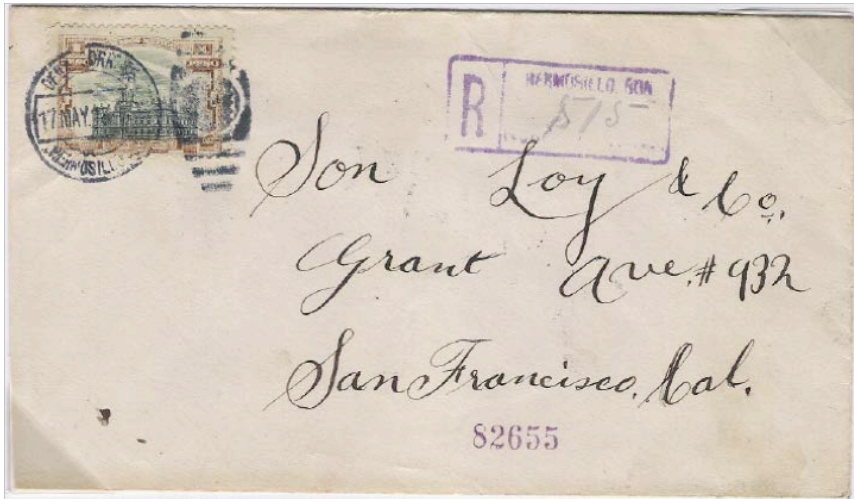 UN PESO
17 MAY.
HERMOSILLO
R
HERMOSILLO, SON
515
Son Loy & Co.
Grant Ave. # 932
San Francisco, Cal.
82655